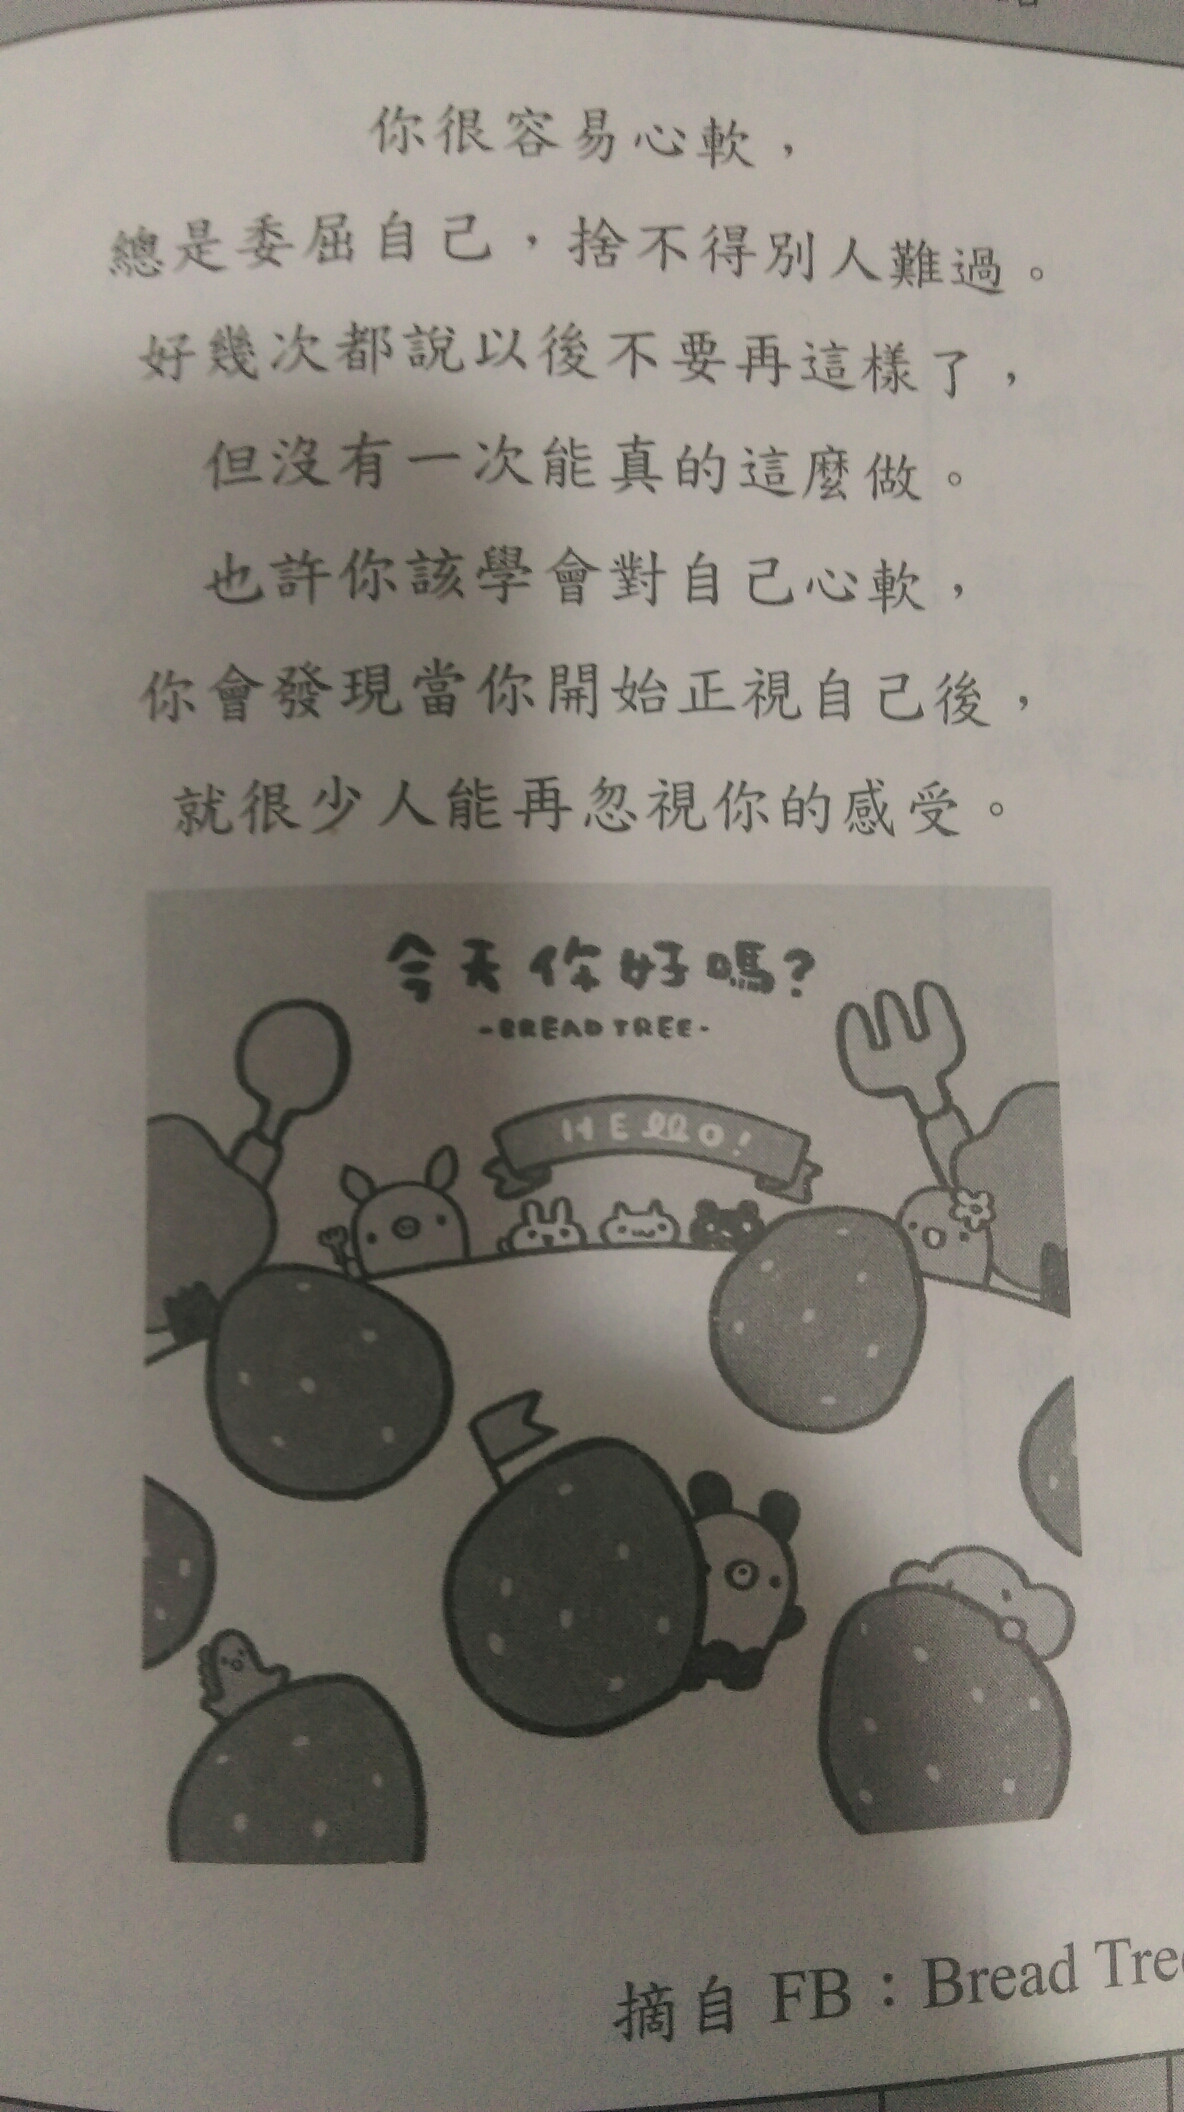 你很容易心軟，
總是委屈自己，捨不得別人難過。
好幾次都說以後不要再這樣了，
但沒有一次能真的這麼做。
也許你該學會對自己心軟，
你會發現當你開始正視自己後，
就很少人能再忽視你的感受。
今天你好嗎?
-BREAD TREE-
HELLO!
摘自 FB：Bread Tree